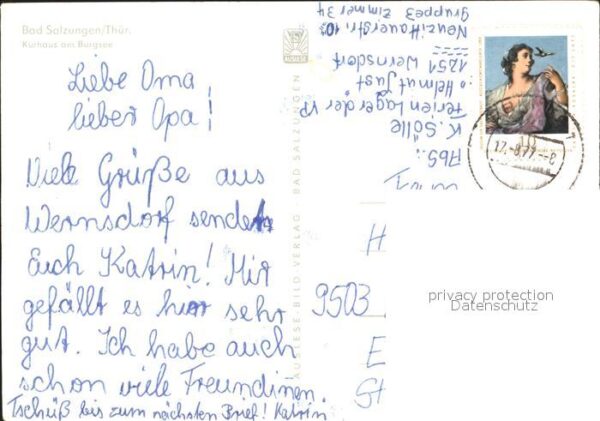 Bad Salzungen/Thür.
Kurhaus am Burgsee
Liebe Oma
lieber Opa!
Viele Grüße aus
Wernsdorf sendet
Euch Katrin! Mir
gefällt es hier sehr
gut. Ich habe auch
schon viele Freundinen.
Tschüß bis zum nächsten Brief! Katrin
AUSLESE-BILD-VERLAG BAD SALZUNGEN
Abs.:
K. Sölle
Ferienlager der VP
"Helmut Just"
1251 Wernsdorf
Neuzittauerstr. 10
Gruppe 3 Zimmer 34
17.-8.77.-8
H
9503
E
St
privacy protection
Datenschutz